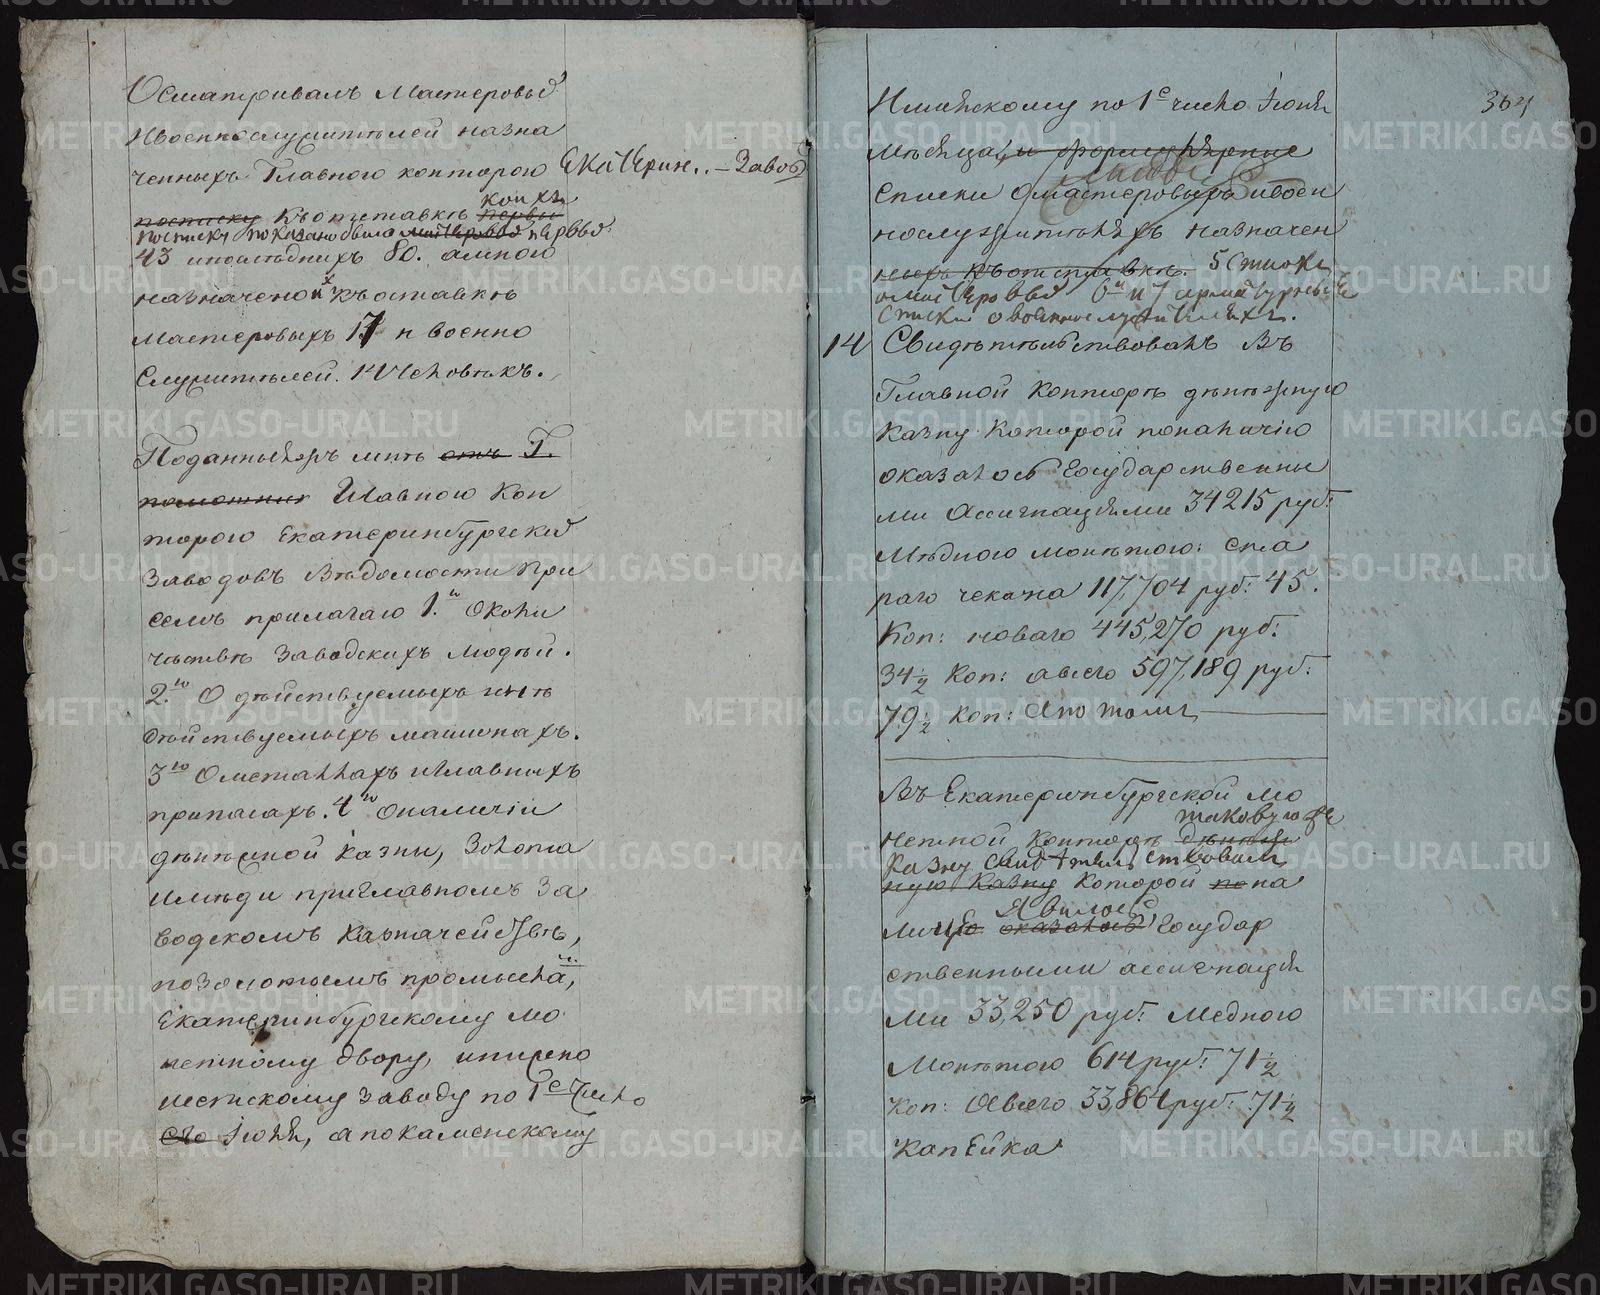 Осматривалъ Мастеровыхъ
Ивоеннослужителей назна
ченныхъ Главною конторою Екатерин..–Завод
посписку Къотставкѣ первы коихъ
посписку показано было мастеровыхъ первыхъ
43 ипослѣднихъ 80. амною
назначено ихъ котставкѣ
Мастеровыхъ 17 и военно
Служителей. 14 человѣкъ.
Поданныя мнѣ отъ Г.
помощник Главною Кон
торою Екатеринбургских
Заводовъ Вѣдомости При
семъ прилагаю 1.ю Околи
чествѣ Заводскихъ людей.
2.ю О дѣйствуемыхъ инѣ
дѣйствуемыхъ машинахъ.
3ю Ометаллахъ иглавныхъ
припасахъ. 4ю Оналичіи
дѣнежной казны, Золота
имѣди приглавномъ За
водскомъ Казначействѣ,
позолотымъ промысла,
Екатеринбургскому мо
нетному двору, инижно
исетскому заводу по 1е число
сго Іюня, а покаменскому
364
Нмянскому по 1е число Іюня
мѣсяца, и формулярные
Списки Омастеровыхъ ивоен
нослужителяхъ назначен
ныхъ къотставкѣ. 5 Списки
омастеровых 6й и 7 арматурные
списки о военнослужителяхъ.
14 Свидѣтельствовалъ Въ
Главной Конторѣ дѣнежную
казну Которой поналичію
оказалось Государственны
ми Ассигнацыями 34215 руб:
Мѣдною монѣтою: ста
раго чекана 117,704 руб: 45.
Коп: новаго 445,270 руб:
34½ Коп: авсего 597,189 руб:
79½ Коп: Апотомъ
Въ Екатеринбургской мо
нетной Конторѣ дѣнеж таковую же
Казну Свидѣтельствовалъ
ную Казну Которой по на
личію оказалось Явилось Государ
ственными ассигнацыя
Ми 33,250 руб: Медною
Монѣтою 614 руб: 71½
Коп: Авсего 33,864 руб: 71½
Капейка
METRIKI.GASO-URAL.RU